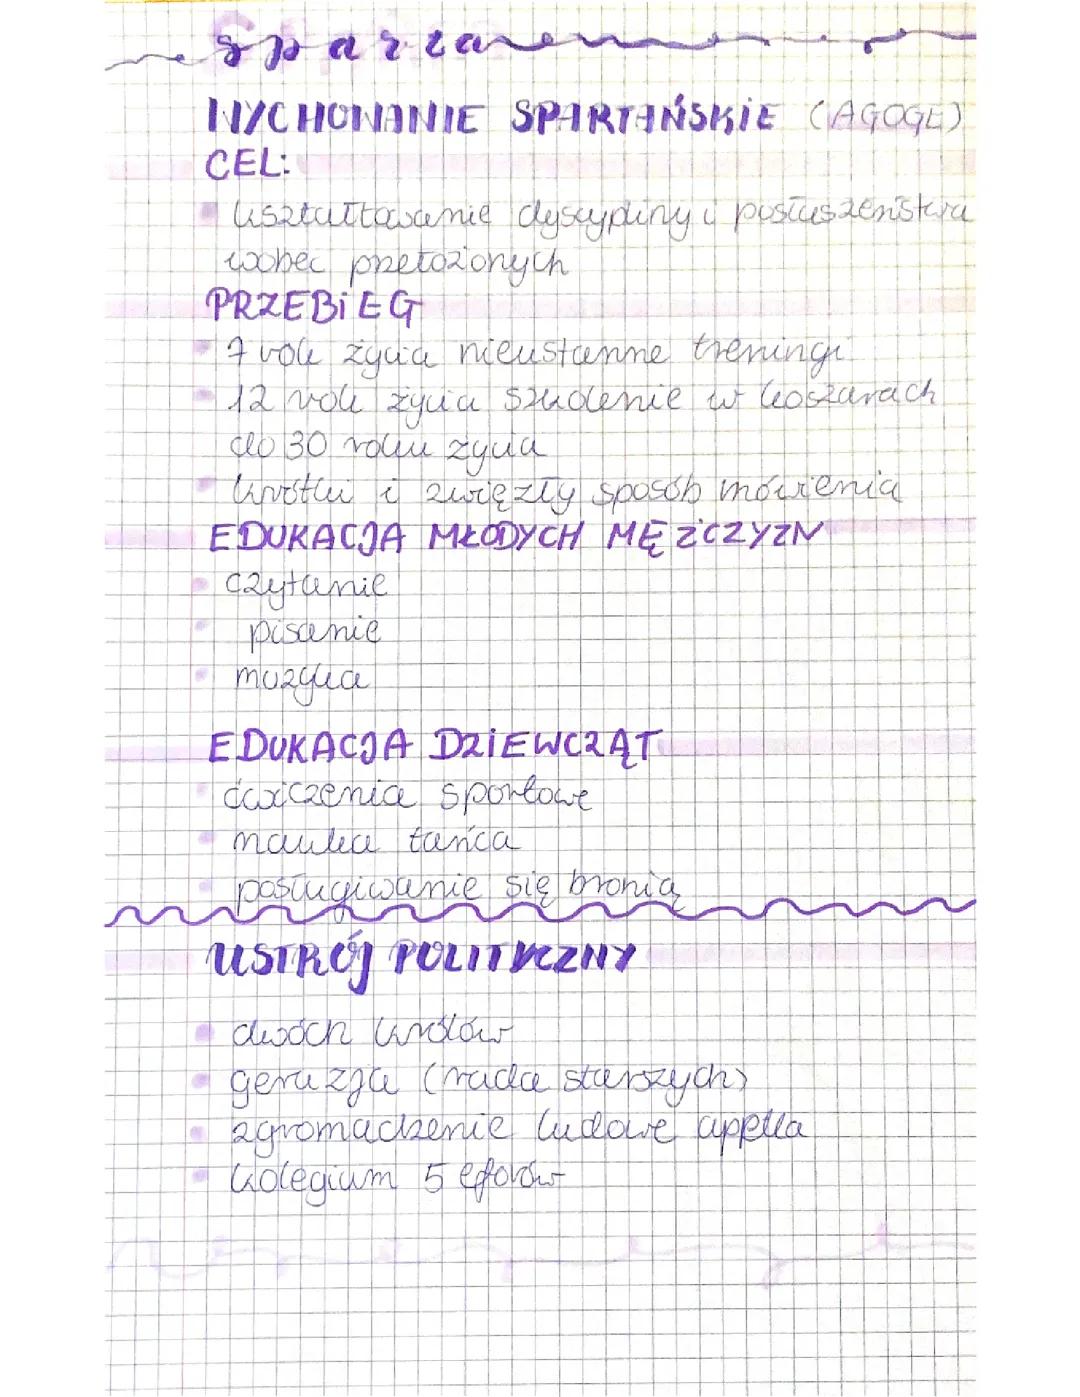 Sparta
WYCHOWANIE SPARTAŃSKIE (AGOGE)
CEL:
kształtowanie dyscypliny i posłuszeństwa
wobec przełożonych
PRZEBIEG
7 rok życia nieustanne treningi
12 rok życia szkolenie w koszarach
do 30 roku życia
krótki i zwięzły sposób mówienia
EDUKACJA MŁODYCH MĘŻCZYZN
czytanie
pisanie
muzyka
EDUKACJA DZIEWCZĄT
ćwiczenia sportowe
nauka tańca
posługiwanie się bronią
USTRÓJ POLITYCZNY
dwóch królów
geruzja (rada starszych)
zgromadzenie ludowe appella
kolegium 5 eforów